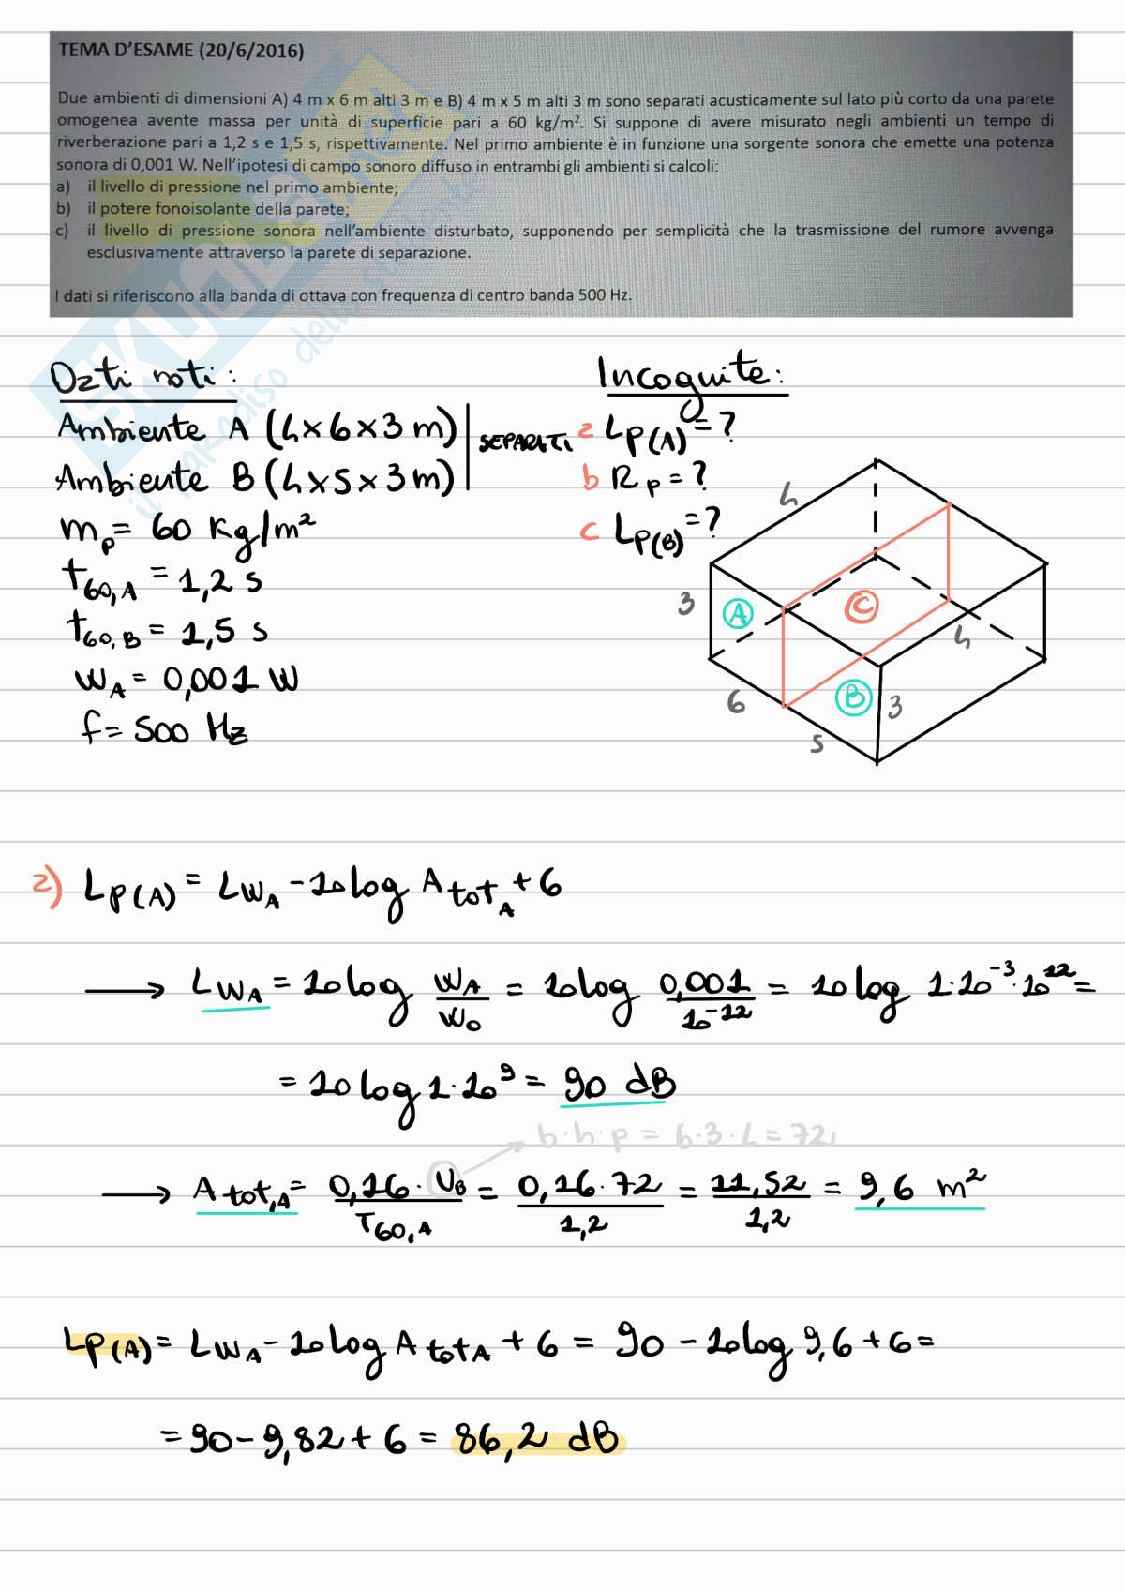 TEMA D'ESAME (20/6/2016)
Due ambienti di dimensioni A) 4 m x 6 m alti 3 m e B) 4 m x 5 m alti 3 m sono separati acusticamente sul lato più corto da una parete
omogenea avente massa per unità di superficie pari a 60 kg/m². Si suppone di avere misurato negli ambienti un tempo di
riverberazione pari a 1,2 s e 1,5 s, rispettivamente. Nel primo ambiente è in funzione una sorgente sonora che emette una potenza
sonora di 0,001 W. Nell'ipotesi di campo sonoro diffuso in entrambi gli ambienti si calcoli:
a) il livello di pressione nel primo ambiente;
b) il potere fonoisolante della parete;
c) il livello di pressione sonora nell'ambiente disturbato, supponendo per semplicità che la trasmissione del rumore avvenga
esclusivamente attraverso la parete di separazione.
I dati si riferiscono alla banda di ottava con frequenza di centro banda 500 Hz.
Dati noti:
Ambiente A (4×6×3 m)
Ambiente B (4×5×3 m)
SEPARATI
m_p = 60 Kg/m²
t_60,A = 1,2 s
t_60,B = 1,5 s
W_A = 0,001 W
f = 500 Hz
Incognite:
a L_P(A) = ?
b R_p = ?
c L_P(B) = ?
4
3
A
C
4
6
B
3
5
a) L_P(A) = L_WA - 10 log A_tot_A + 6
→ L_WA = 10 log W_A/W_0 = 10 log 0,001/10⁻¹² = 10 log 1·10⁻³·10¹² =
= 10 log 1·10⁹ = 90 dB
b·h·p = 6·3·4 = 72
→ A_tot,A = 0,16·V_B/T_60,A = 0,16·72/1,2 = 11,52/1,2 = 9,6 m²
L_P(A) = L_WA - 10 log A_totA + 6 = 90 - 10 log 9,6 + 6 =
= 90 - 9,82 + 6 = 86,2 dB